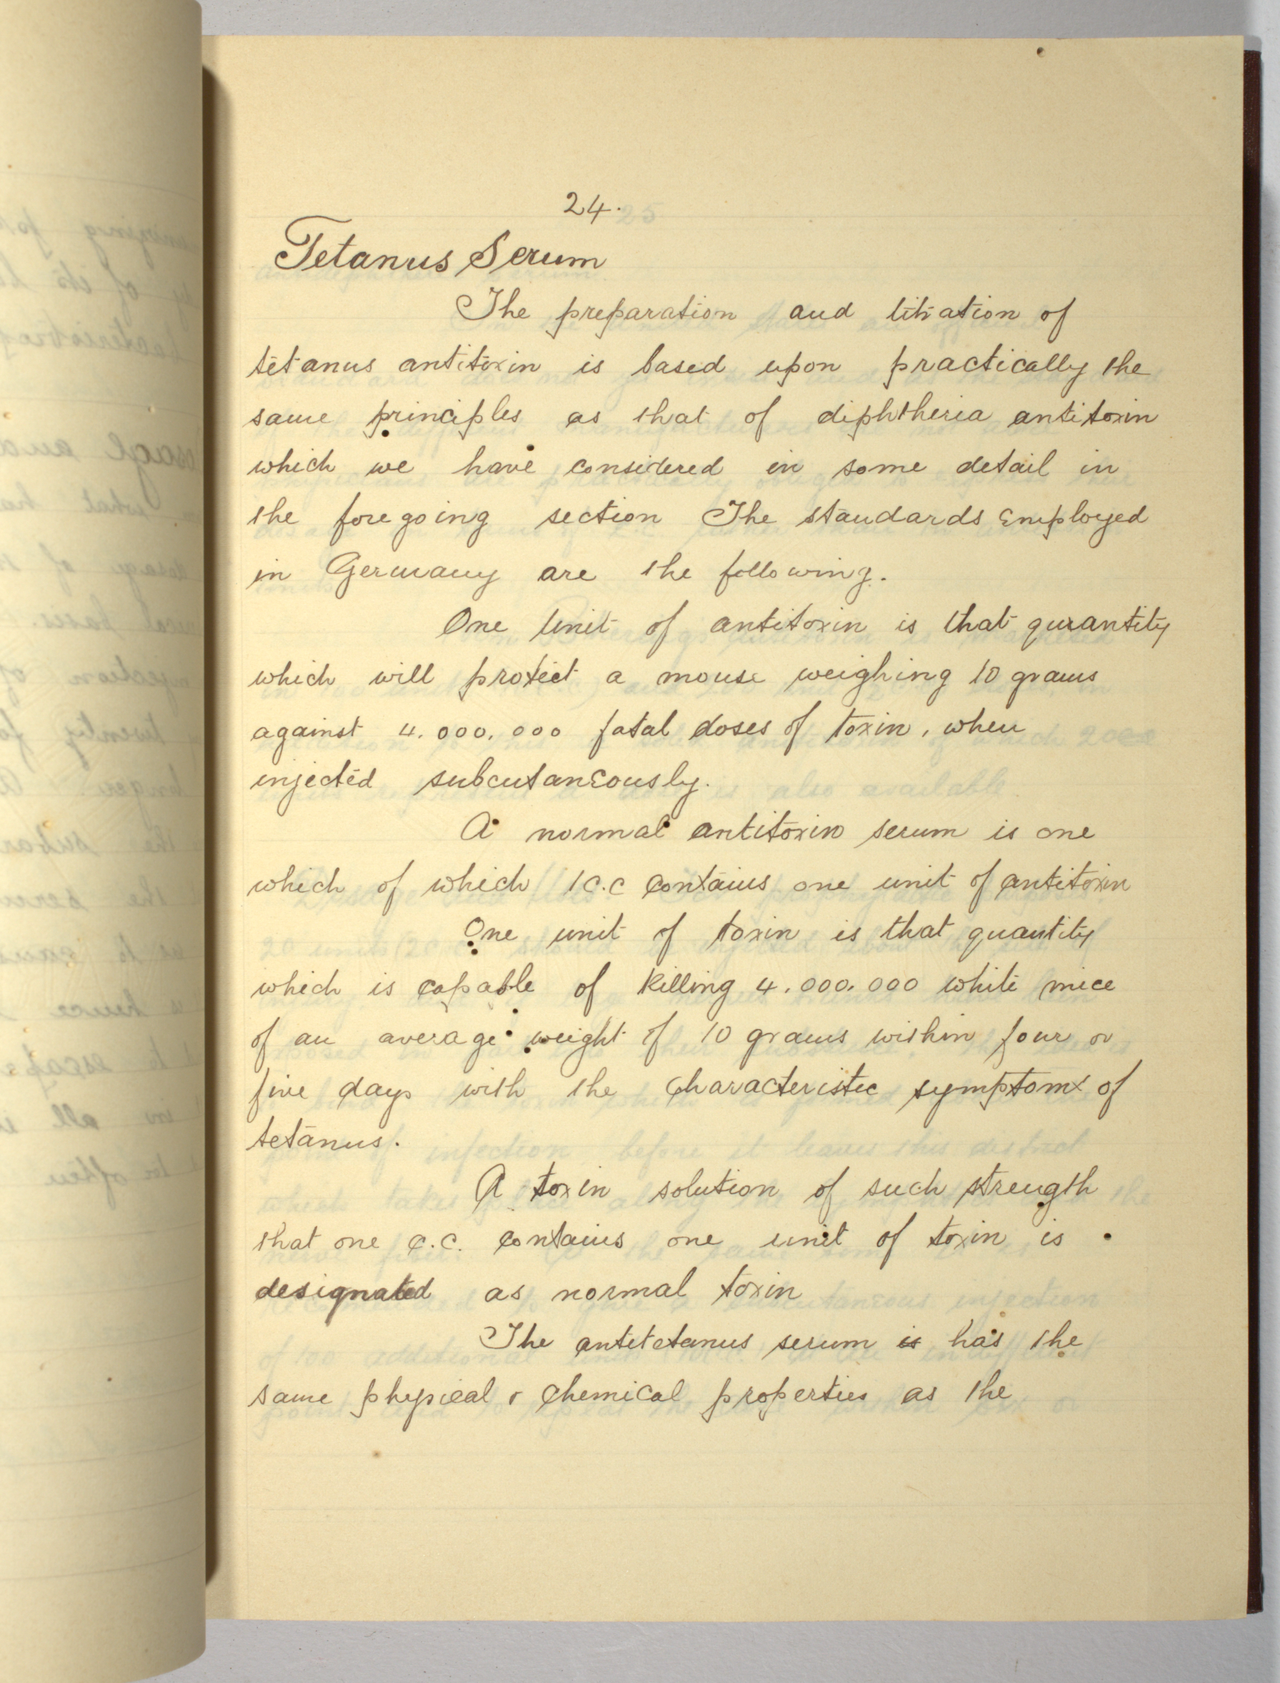 24.
Tetanus Serum
The preparation and titration of
tetanus antitoxin is based upon practically the
same principles as that of diphtheria antitoxin
which we have considered in some detail in
the foregoing section The standards employed
in Germany are the following.
One Unit of antitoxin is that qurantity
which will protect a mouse weighing 10 grams
against 4.000.000 fatal doses of toxin, when
injected subcutaneously.
A normal antitoxin serum is one
which of which 1 c.c contains one unit of antitoxin
One unit of toxin is that quantity
which is capable of killing 4.000.000 white mice
of an average weight of 10 grams within four or
five days with the characteristic symptoms of
tetanus.
A toxin solution of such strength
that one c.c. contains one unit of toxin is
designated as normal toxin
The antitetanus serum is has the
same physical & chemical properties as the